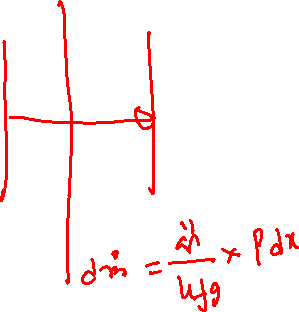 dṁ = q̇/hfg × P dx